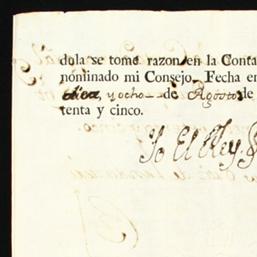 dula se tome razon en la Conta
nominado mi Consejo. Fecha en
diez, y ocho de Agosto de
tenta y cinco.
Yo El Rey.